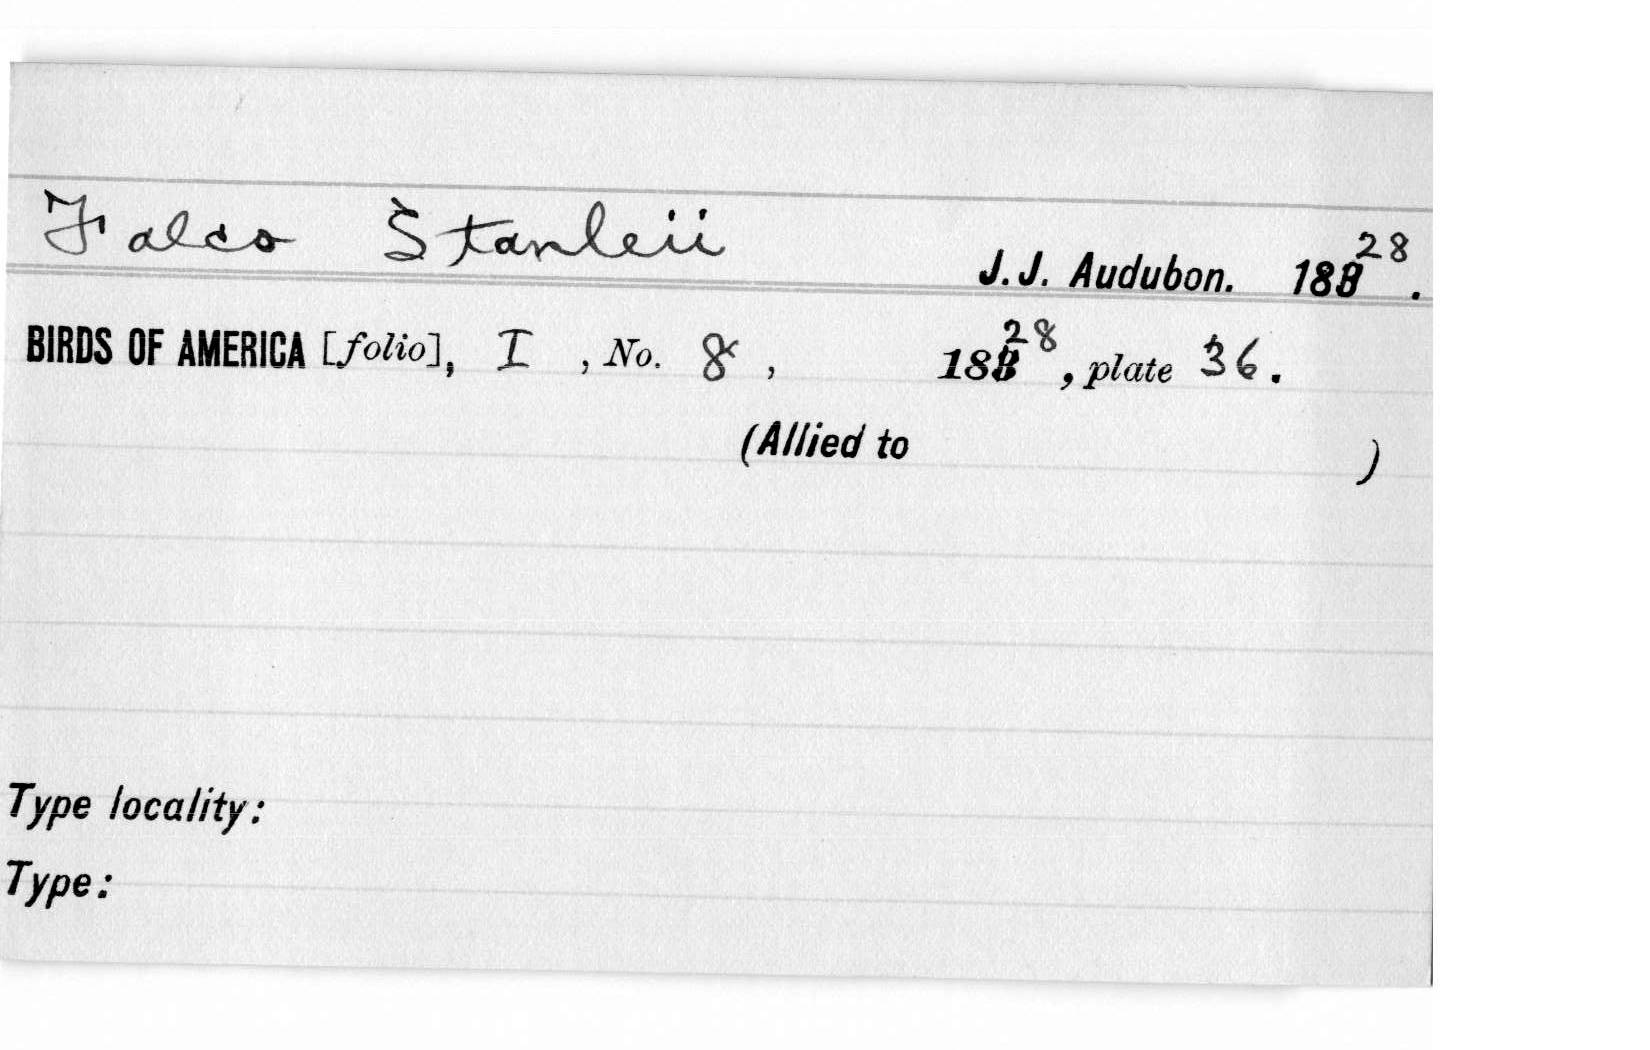 Falco Stanleii
J. J. Audubon. 1828.
BIRDS OF AMERICA [folio], I , No. 8 , 1828 , plate 36.
(Allied to )
Type locality:
Type: